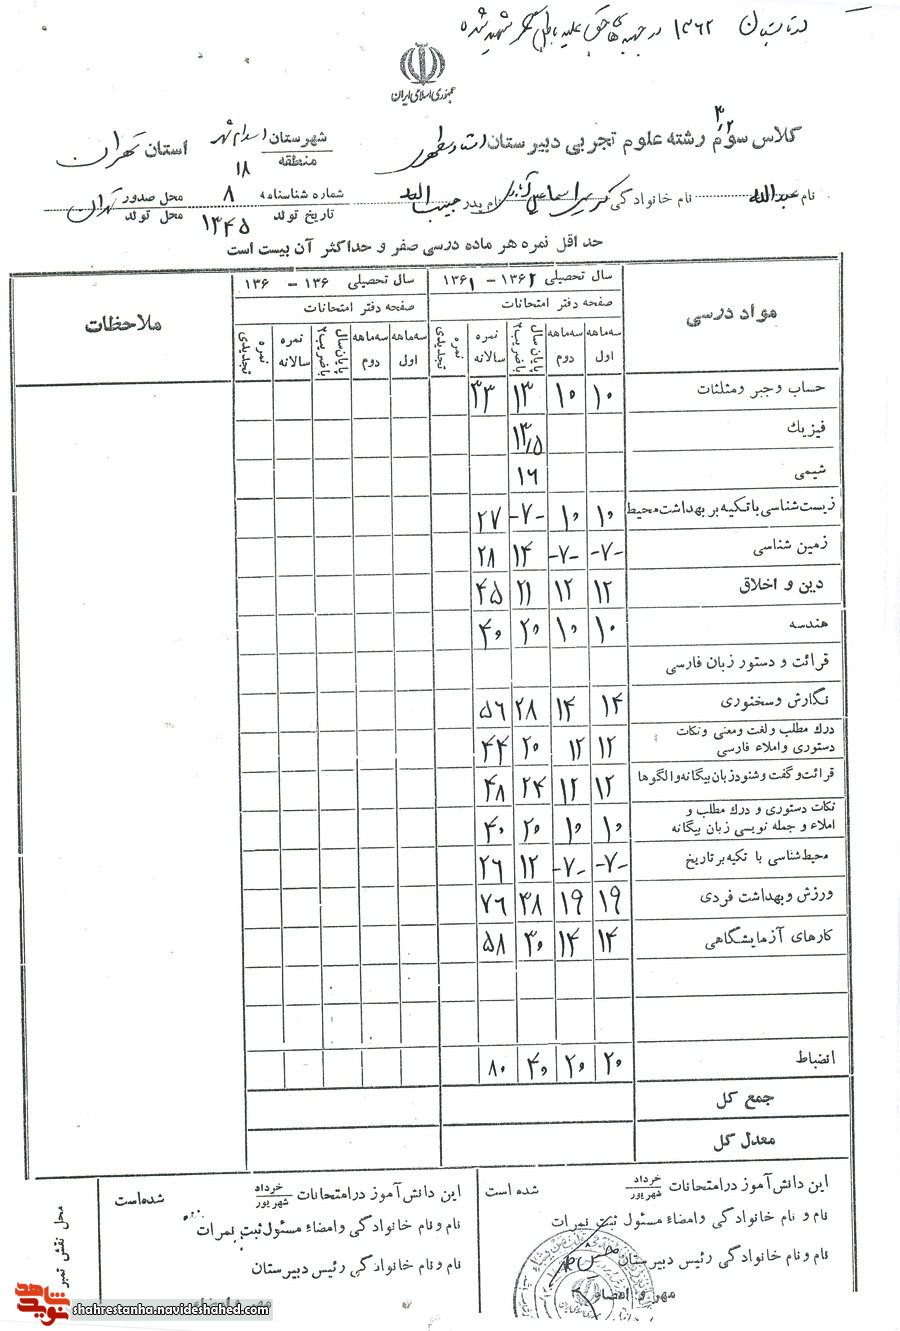 در تابستان ۱۳۶۲ در جبهه های حق علیه باطل شهید شده
جمهوری اسلامی ایران
کلاس سوم ۳/۲ رشته علوم تجربی دبیرستان استاد مطهری شهرستان اسلام شهر منطقه ۱۸ استان تهران
نام عبدالله نام خانوادگی نام پدر حبیب الله شماره شناسنامه ۸ محل صدور تهران
تاریخ تولد ۱۳۴۵ محل تولد
حداقل نمره هر ماده درسی صفر و حداکثر آن بیست است
مواد درسی سال تحصیلی ۱۳۶۲ – ۱۳۶۱ سال تحصیلی ۱۳۶ – ۱۳۶ ملاحظات
صفحه دفتر امتحانات صفحه دفتر امتحانات
سه ماهه اول سه ماهه دوم پایان سال باضریب ۲ نمره سالانه نمره تجدیدی سه ماهه اول سه ماهه دوم پایان سال باضریب ۲ نمره سالانه نمره تجدیدی
حساب و جبر و مثلثات ۱۰ ۱۰ ۱۳ ۳۳
فیزیك ۱۳/۵
شیمی ۱۶
زیست شناسی با تکیه بر بهداشت محیط ۱۰ ۱۰ -۷- ۲۷
زمین شناسی -۷- -۷- ۱۴ ۲۸
دین و اخلاق ۱۲ ۱۲ ۲۱ ۴۵
هندسه ۱۰ ۱۰ ۲۰ ۴۰
قرائت و دستور زبان فارسی
نگارش و سخنوری ۱۴ ۱۴ ۲۸ ۵۶
درك مطلب و لغت و معنی و نکات
دستوری و املاء فارسی ۱۲ ۱۲ ۲۰ ۴۴
قرائت و گفت و شنود زبان بیگانه و الگوها ۱۲ ۱۲ ۲۴ ۴۸
نکات دستوری و درك مطلب و
املاء و جمله نویسی زبان بیگانه ۱۰ ۱۰ ۲۰ ۴۰
محیط شناسی با تکیه بر تاریخ -۷- -۷- ۱۲ ۲۶
ورزش و بهداشت فردی ۱۹ ۱۹ ۳۸ ۷۶
کارهای آزمایشگاهی ۱۴ ۱۴ ۳۰ ۵۸
انضباط ۲۰ ۲۰ ۴۰ ۸۰
جمع کل
معدل کل
این دانش آموز در امتحانات خرداد شهریور شده است
نام و نام خانوادگی و امضاء مسئول ثبت نمرات
نام و نام خانوادگی رئیس دبیرستان
مهر و امضاء
این دانش آموز در امتحانات خرداد شهریور شده است
نام و نام خانوادگی و امضاء مسئول ثبت نمرات
نام و نام خانوادگی رئیس دبیرستان
مهر و امضاء
محل نقش تمبر
نوید شاهد
shahrestanha.navideshahed.com